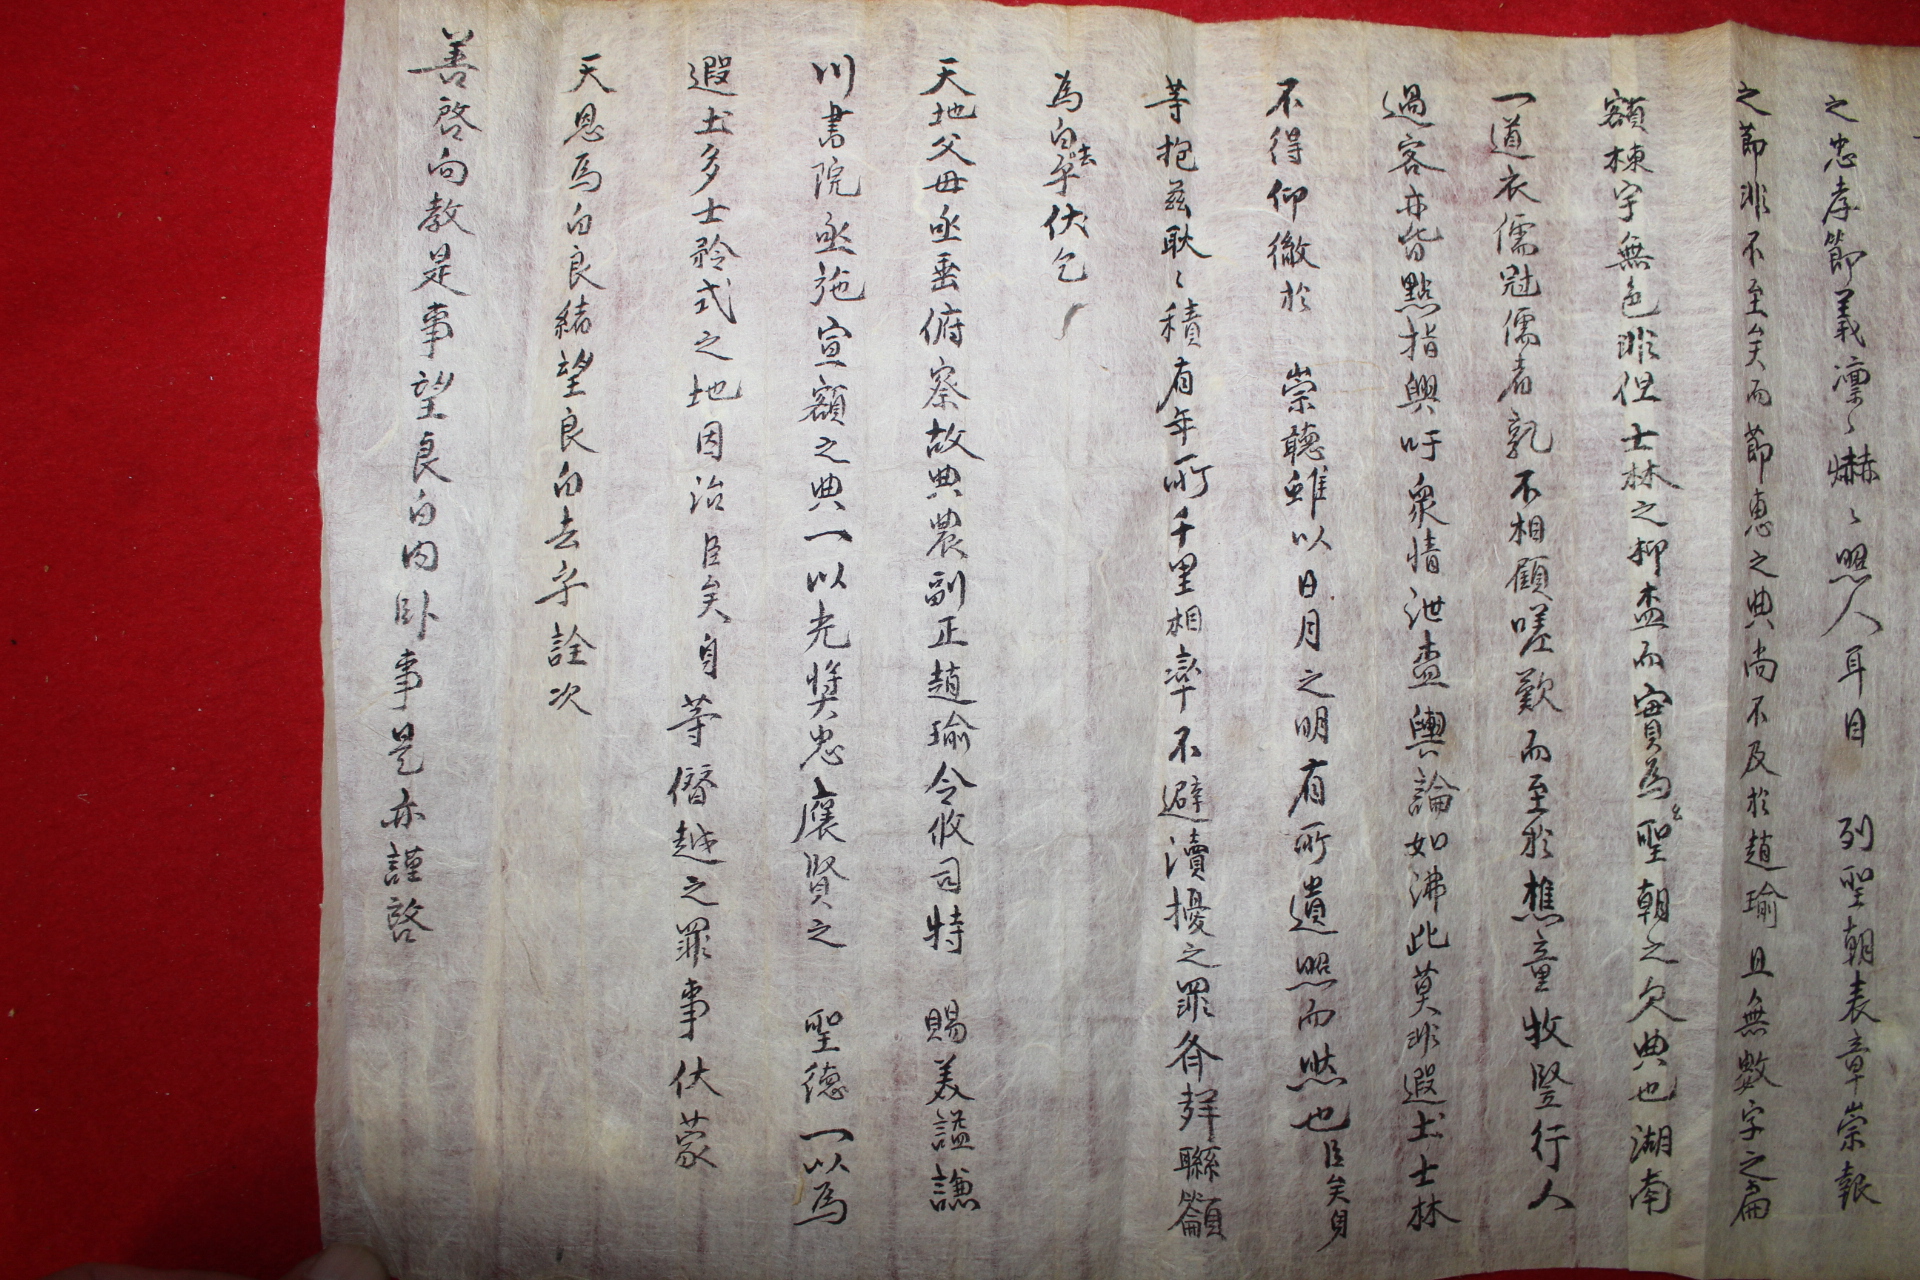 之忠孝節義凜〻赫〻照人耳目 列聖朝表章崇報
之節非不至矣而節惠之典尚不及於趙瑜且無數字之扁
額棟宇無色非但士林之抑盃而實為聖朝之欠典也湖南
一道衣儒冠儒者孰不相顧嗟歎而至於樵童牧竪行人
過客亦皆點指興吁衆情泄盃輿論如沸此莫非遐士士林
不得仰徹於 崇聽雖以日月之明有所遺照而然也臣矣身
等抱玆耿〻積有年所千里相率不避瀆擾之罪齐龥聯籲
為白去乎伏乞
天地父母亟垂俯察故典農副正趙瑜令攸司特 賜美諡謙
川書院亟施宣額之典一以光奬忠褒賢之 聖德一以為
遐土多士矜式之地因治臣矣身等僭越之罪事伏蒙
天恩為白良緖望良白去乎詮次
善啓向教是事望良白內卧事是亦謹啓